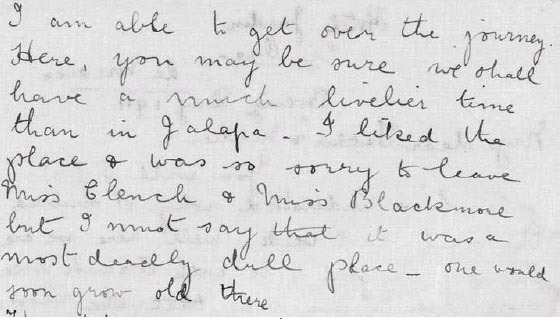 I am able to get over the journey.
Here, you may be sure we shall
have a much livelier time
than in Jalapa - I liked the
place & was so sorry to leave
Miss Clench & Miss Blackmore
but I must say that it was a
most deadly dull place - one would
soon grow old there